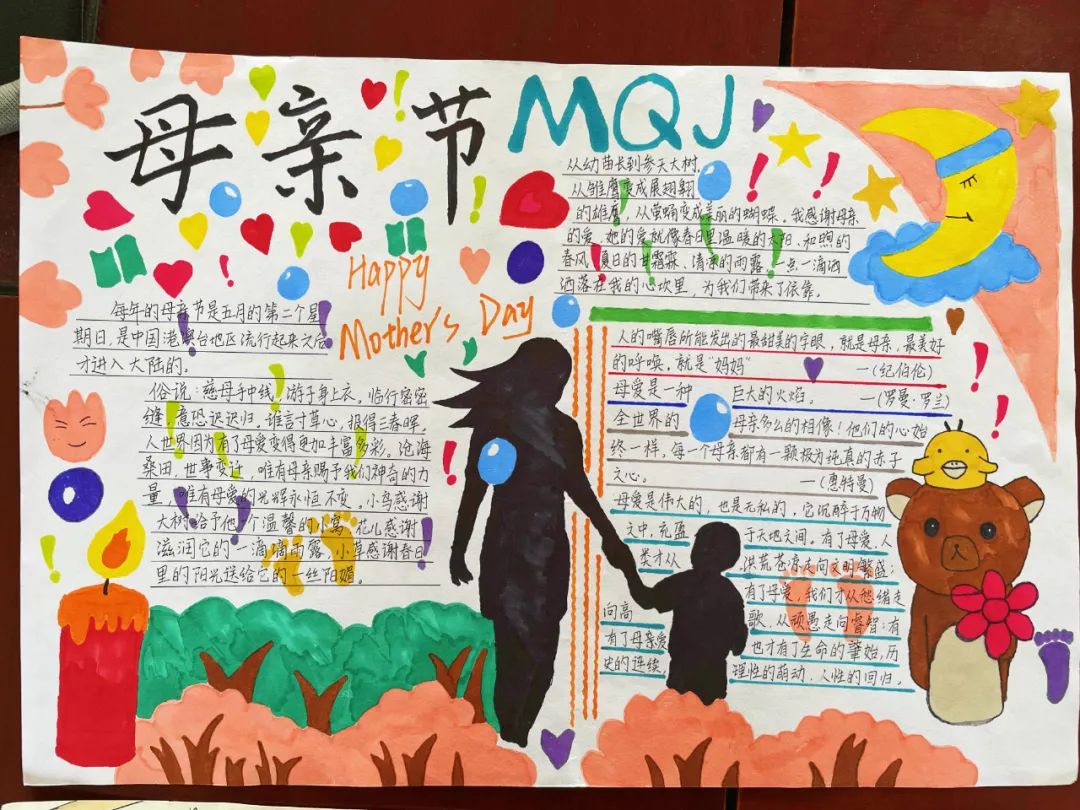 母亲节
MQJ
Happy
Mother's Day
每年的母亲节是五月的第二个星
期日，是中国港澳台地区流行起来之后
才进入大陆的。
俗说：慈母手中线，游子身上衣，临行密密
缝，意恐迟迟归，谁言寸草心，报得三春晖。
人世界因为有了母爱变得更加丰富多彩。沧海
桑田，世事变迁，唯有母亲赐予我们神奇的力
量，唯有母爱的光辉永恒不变。小鸟感谢
大树给予他个温馨的小窝，花儿感谢
滋润它的一滴滴雨露，小草感谢春日
里的阳光送给它的一丝阳媚。
从幼苗长到参天大树，
从雏鹰变成展翅翱翔
的雄鹰，从萤蛹变成美丽的蝴蝶。我感谢母亲
的爱，她的爱就像春日里温暖的太阳、和煦的
春风，夏日的甘霜霖、清凉的雨露，一点一滴洒
洒落在我的心坎里，为我们带来了依靠。
人的嘴唇所能发出的最甜美的字眼，就是母亲，最美好
的呼唤，就是“妈妈” —(纪伯伦)
母爱是一种 巨大的火焰。 —(罗曼·罗兰)
全世界的 母亲多么的相像！他们的心始
终一样，每一个母亲都有一颗极为纯真的赤子
之心。 —(惠特曼)
母爱是伟大的，也是无私的，它沉醉于万物
之中，充盈 于天地之间。有了母爱，人
类才从 洪荒苍凉走向文明繁盛；
有了母爱，我们才从愁绪走
向高 歌，从顽愚走向睿智；有
有了母亲爱 也才有了生命的肇始，历
史的连续， 理性的萌动，人性的回归。